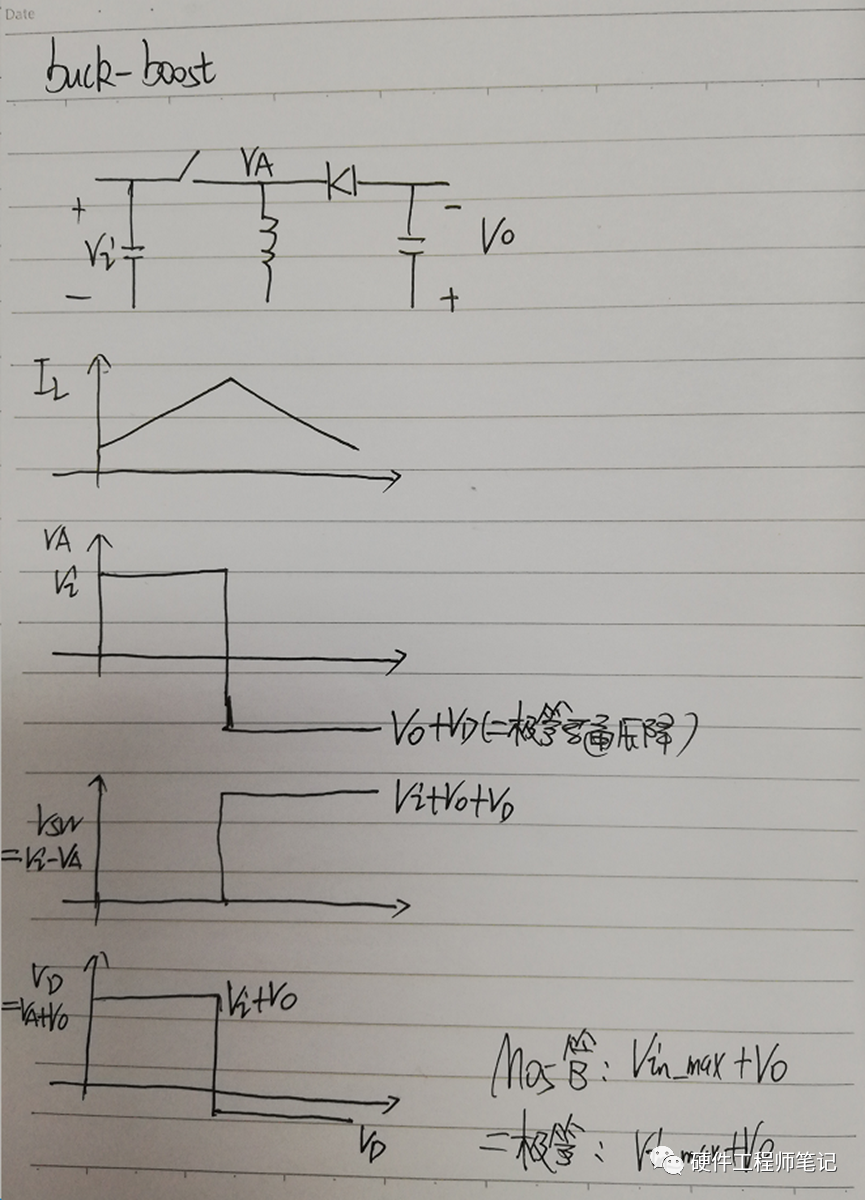 Date
buck-boost
VA
+
Vi
-
-
Vo
+
IL
VA
Vi
Vo+VD(二极管导通压降)
Vsw
=Vi-VA
Vi+Vo+VD
VD
=VA+Vo
Vi+Vo
VD
Mos管: Vin_max+Vo
二极管: _max+Vo
硬件工程师笔记